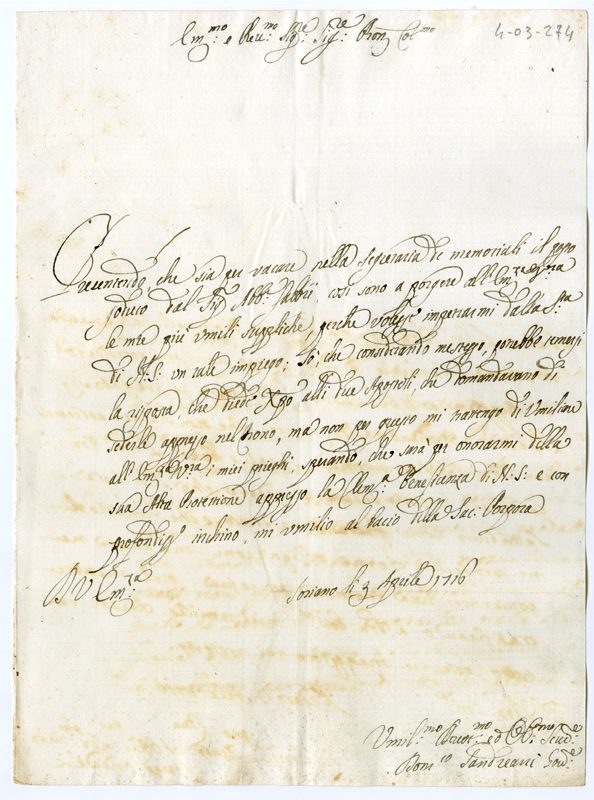 4-03-274
Em.mo e Rev.mo Sig.re Sig.re Pron Col.mo
Presentendo, che sia per vacare nella segretaria de memoriali il posto
goduto dal Sig. Abb. Fabbri, così sono a porgere all'Em.za V.ra
le mie più umili suppliche, perche voglia impetrarmi dalla S.tà
di N.S: un tale impiego; Sò, che considerando me stesso, potrebbe temersi
la risposta, che diede Xpo alli due Apostoli, che domandavano di
sederle appresso nel trono, ma non per questo mi trattengo di umiliare
all'Em.za V.ra i miei prieghi, sperando, che sarà per onorarmi della
sua Alta Protezione appresso la Clem.ma Beneficenza di N.S: e con
profondiss.o inchino, mi umilio al bacio della Sac: Porpora
D V Em.za
Soriano li 3 Aprile 1716
Umil.mo Devot.mo ed Obl.mo Ser.re
Dom.co Sandreani